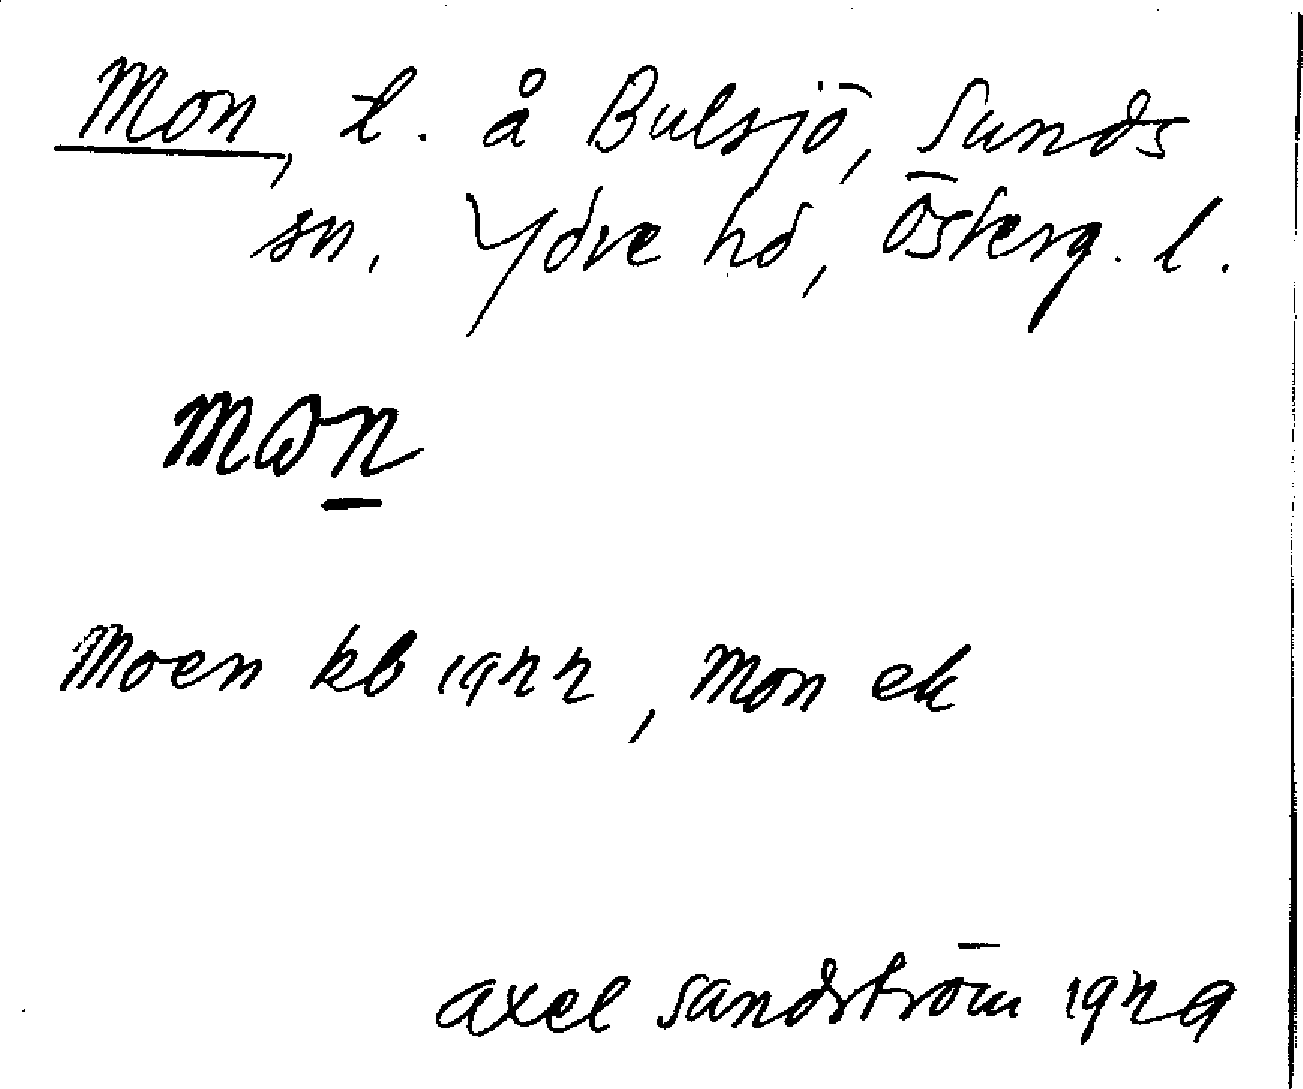 Mon, t. å Bulsjö, Sunds
sn, Ydre hd, Österg. l.
mωn
Moen kb 1922, Mon ek
Axel Sandström 1929